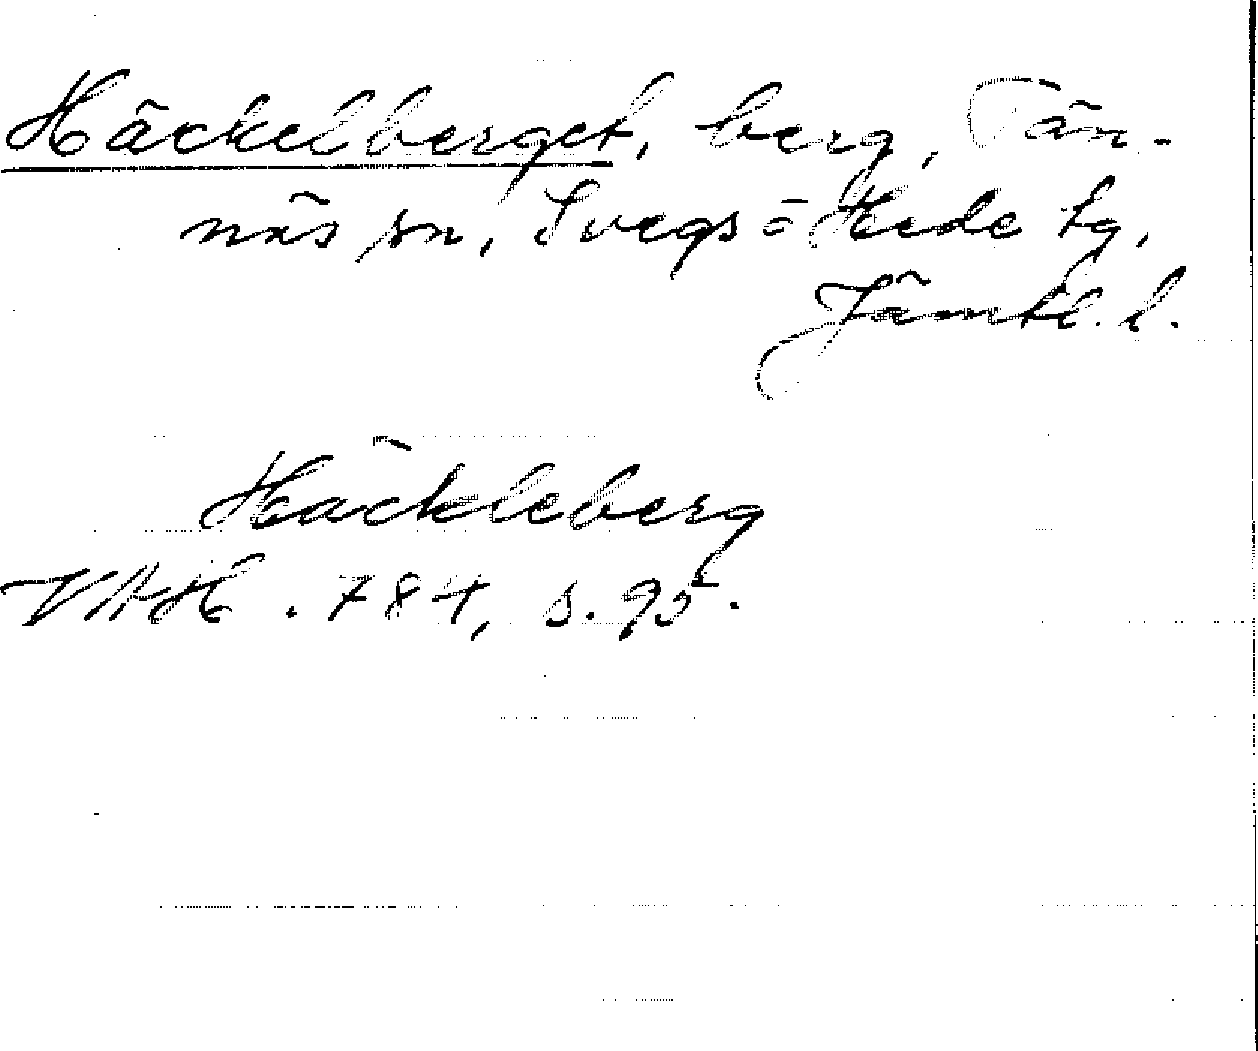 Häckelberget, berg, Tän-
näs sn, Svegs=Hede tg,
Jämtl. l.
Häckleberg
VAH. 784, s. 95.